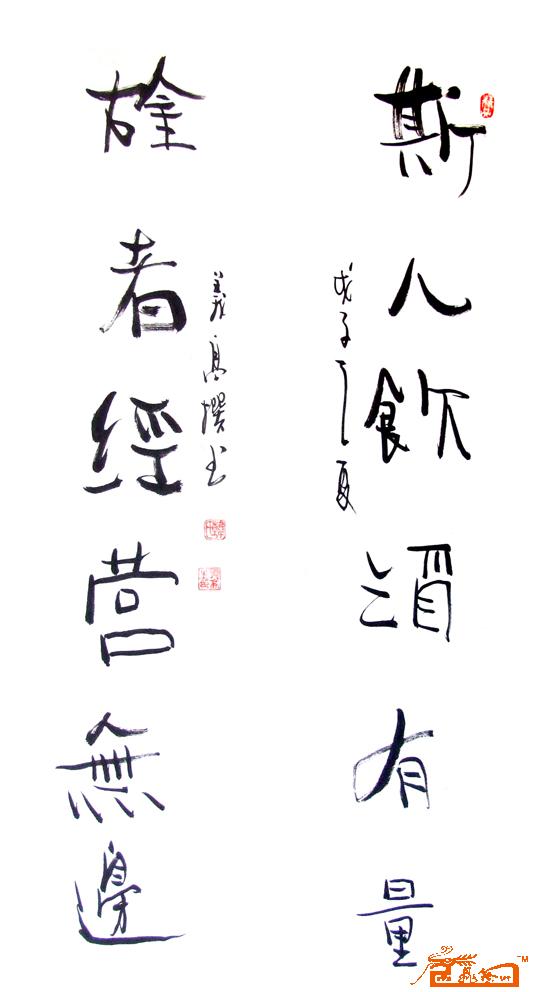 斯人飲酒有量
戊子之夏
義高撰书
雄者經營無邊